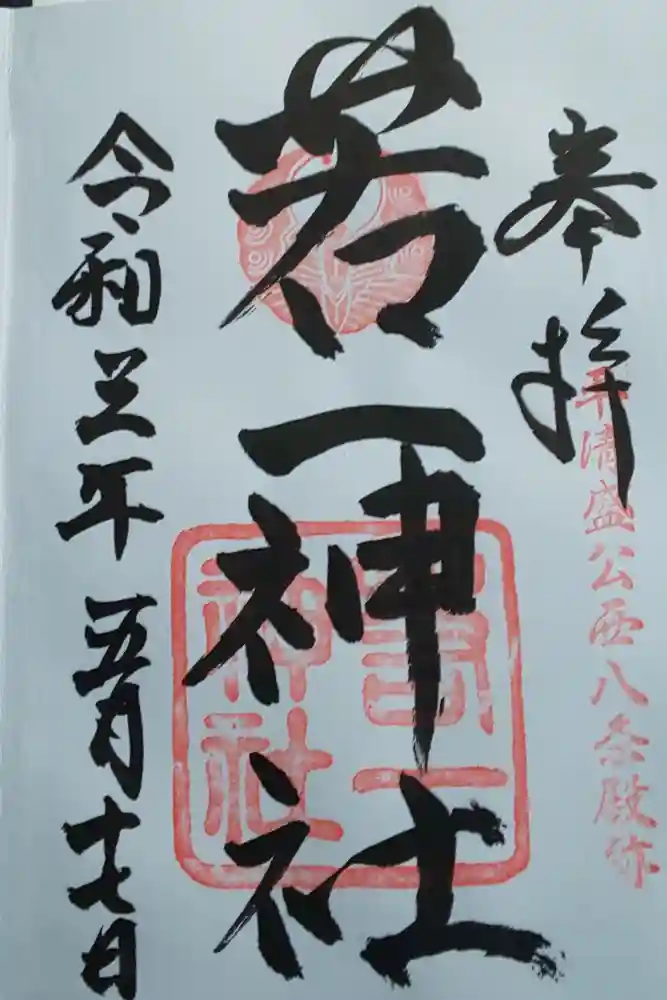 奉拝
平清盛公西八条殿跡
若一神社
若一神社
令和三年五月十七日